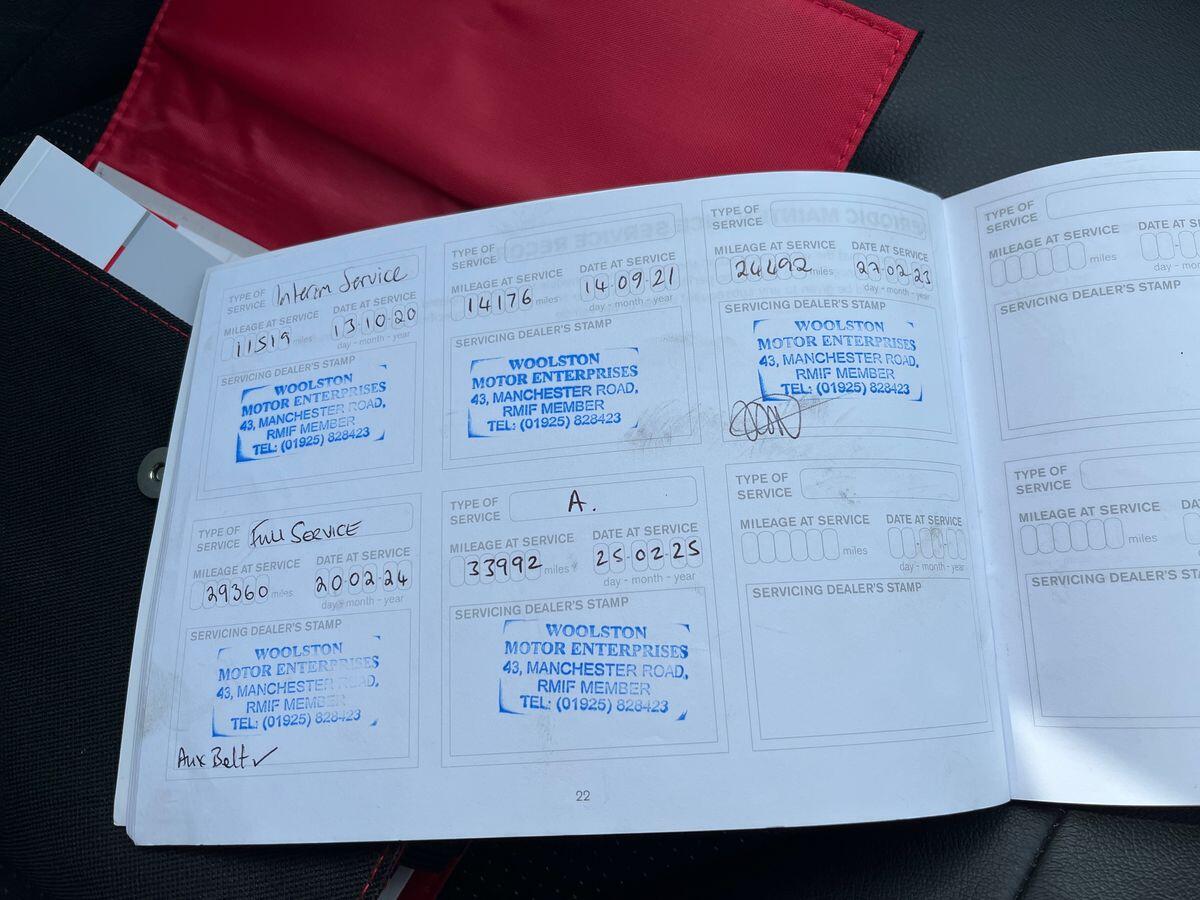 TYPE OF SERVICE Interim Service
MILEAGE AT SERVICE DATE AT SERVICE
11519 miles 13·10·20
day - month - year
SERVICING DEALER'S STAMP
WOOLSTON
MOTOR ENTERPRISES
43, MANCHESTER ROAD,
RMIF MEMBER
TEL: (01925) 828423
TYPE OF SERVICE
MILEAGE AT SERVICE DATE AT SERVICE
14176 miles 14·09·21
day - month - year
SERVICING DEALER'S STAMP
WOOLSTON
MOTOR ENTERPRISES
43, MANCHESTER ROAD,
RMIF MEMBER
TEL: (01925) 828423
TYPE OF SERVICE
MILEAGE AT SERVICE DATE AT SERVICE
24492 miles 27·02·23
day - month - year
SERVICING DEALER'S STAMP
WOOLSTON
MOTOR ENTERPRISES
43, MANCHESTER ROAD,
RMIF MEMBER
TEL: (01925) 828423
TYPE OF SERVICE Full SERVICE
MILEAGE AT SERVICE DATE AT SERVICE
29360 miles 20·02·24
day - month - year
SERVICING DEALER'S STAMP
WOOLSTON
MOTOR ENTERPRISES
43, MANCHESTER ROAD,
RMIF MEMBER
TEL: (01925) 828423
Aux Belt ✓
TYPE OF SERVICE A.
MILEAGE AT SERVICE DATE AT SERVICE
33992 miles 25·02·25
day - month - year
SERVICING DEALER'S STAMP
WOOLSTON
MOTOR ENTERPRISES
43, MANCHESTER ROAD,
RMIF MEMBER
TEL: (01925) 828423
TYPE OF SERVICE
MILEAGE AT SERVICE DATE AT SERVICE
miles
day - month - year
SERVICING DEALER'S STAMP
22
TYPE OF SERVICE
MILEAGE AT SERVICE DATE AT
miles day - m
SERVICING DEALER'S STAMP
TYPE OF SERVICE
MILEAGE AT SERVICE DATE A
miles day
SERVICING DEALER'S STA